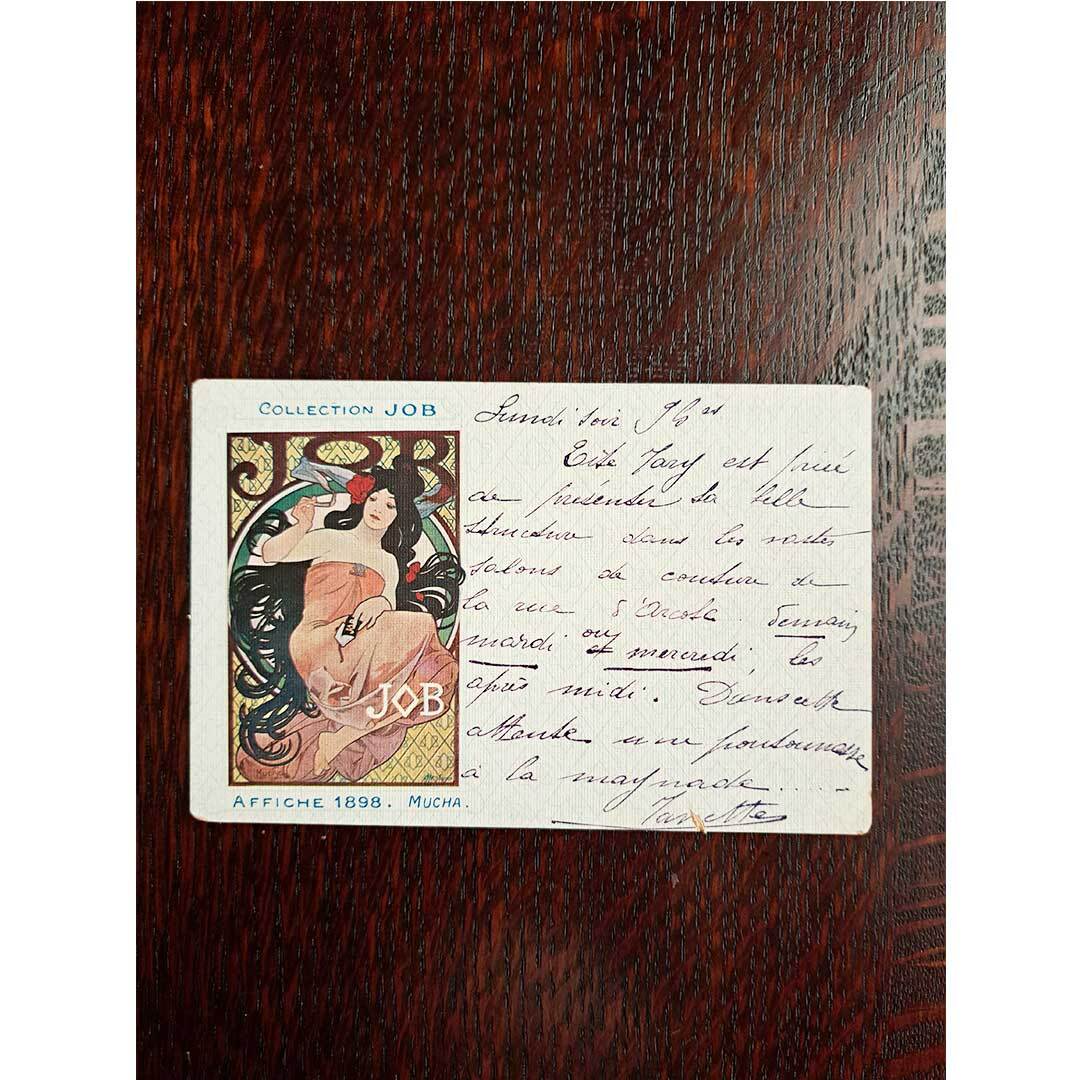 COLLECTION JOB
JOB
JOB
MUCHA
AFFICHE 1898. MUCHA.
Lundi soir
est priée
de présenter sa belle
structure dans les vastes
salons de couture de
la rue d'Arcole. demain
mardi ou
et mercredi, les
après midi. Dans cette
attente une
à la maynade.....